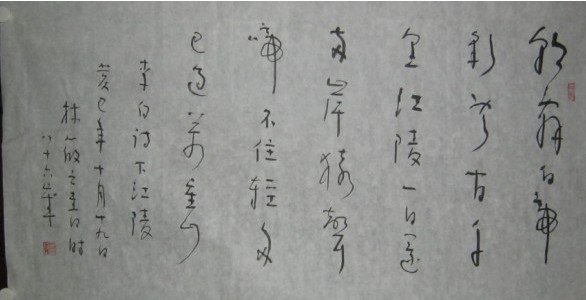 朝辞白帝
彩云间千
里江陵一日還
两岸猿聲
啼不住轻舟
已过万重山
李白诗下江陵
癸巳年十月十九日
林筱之书 时
八十六